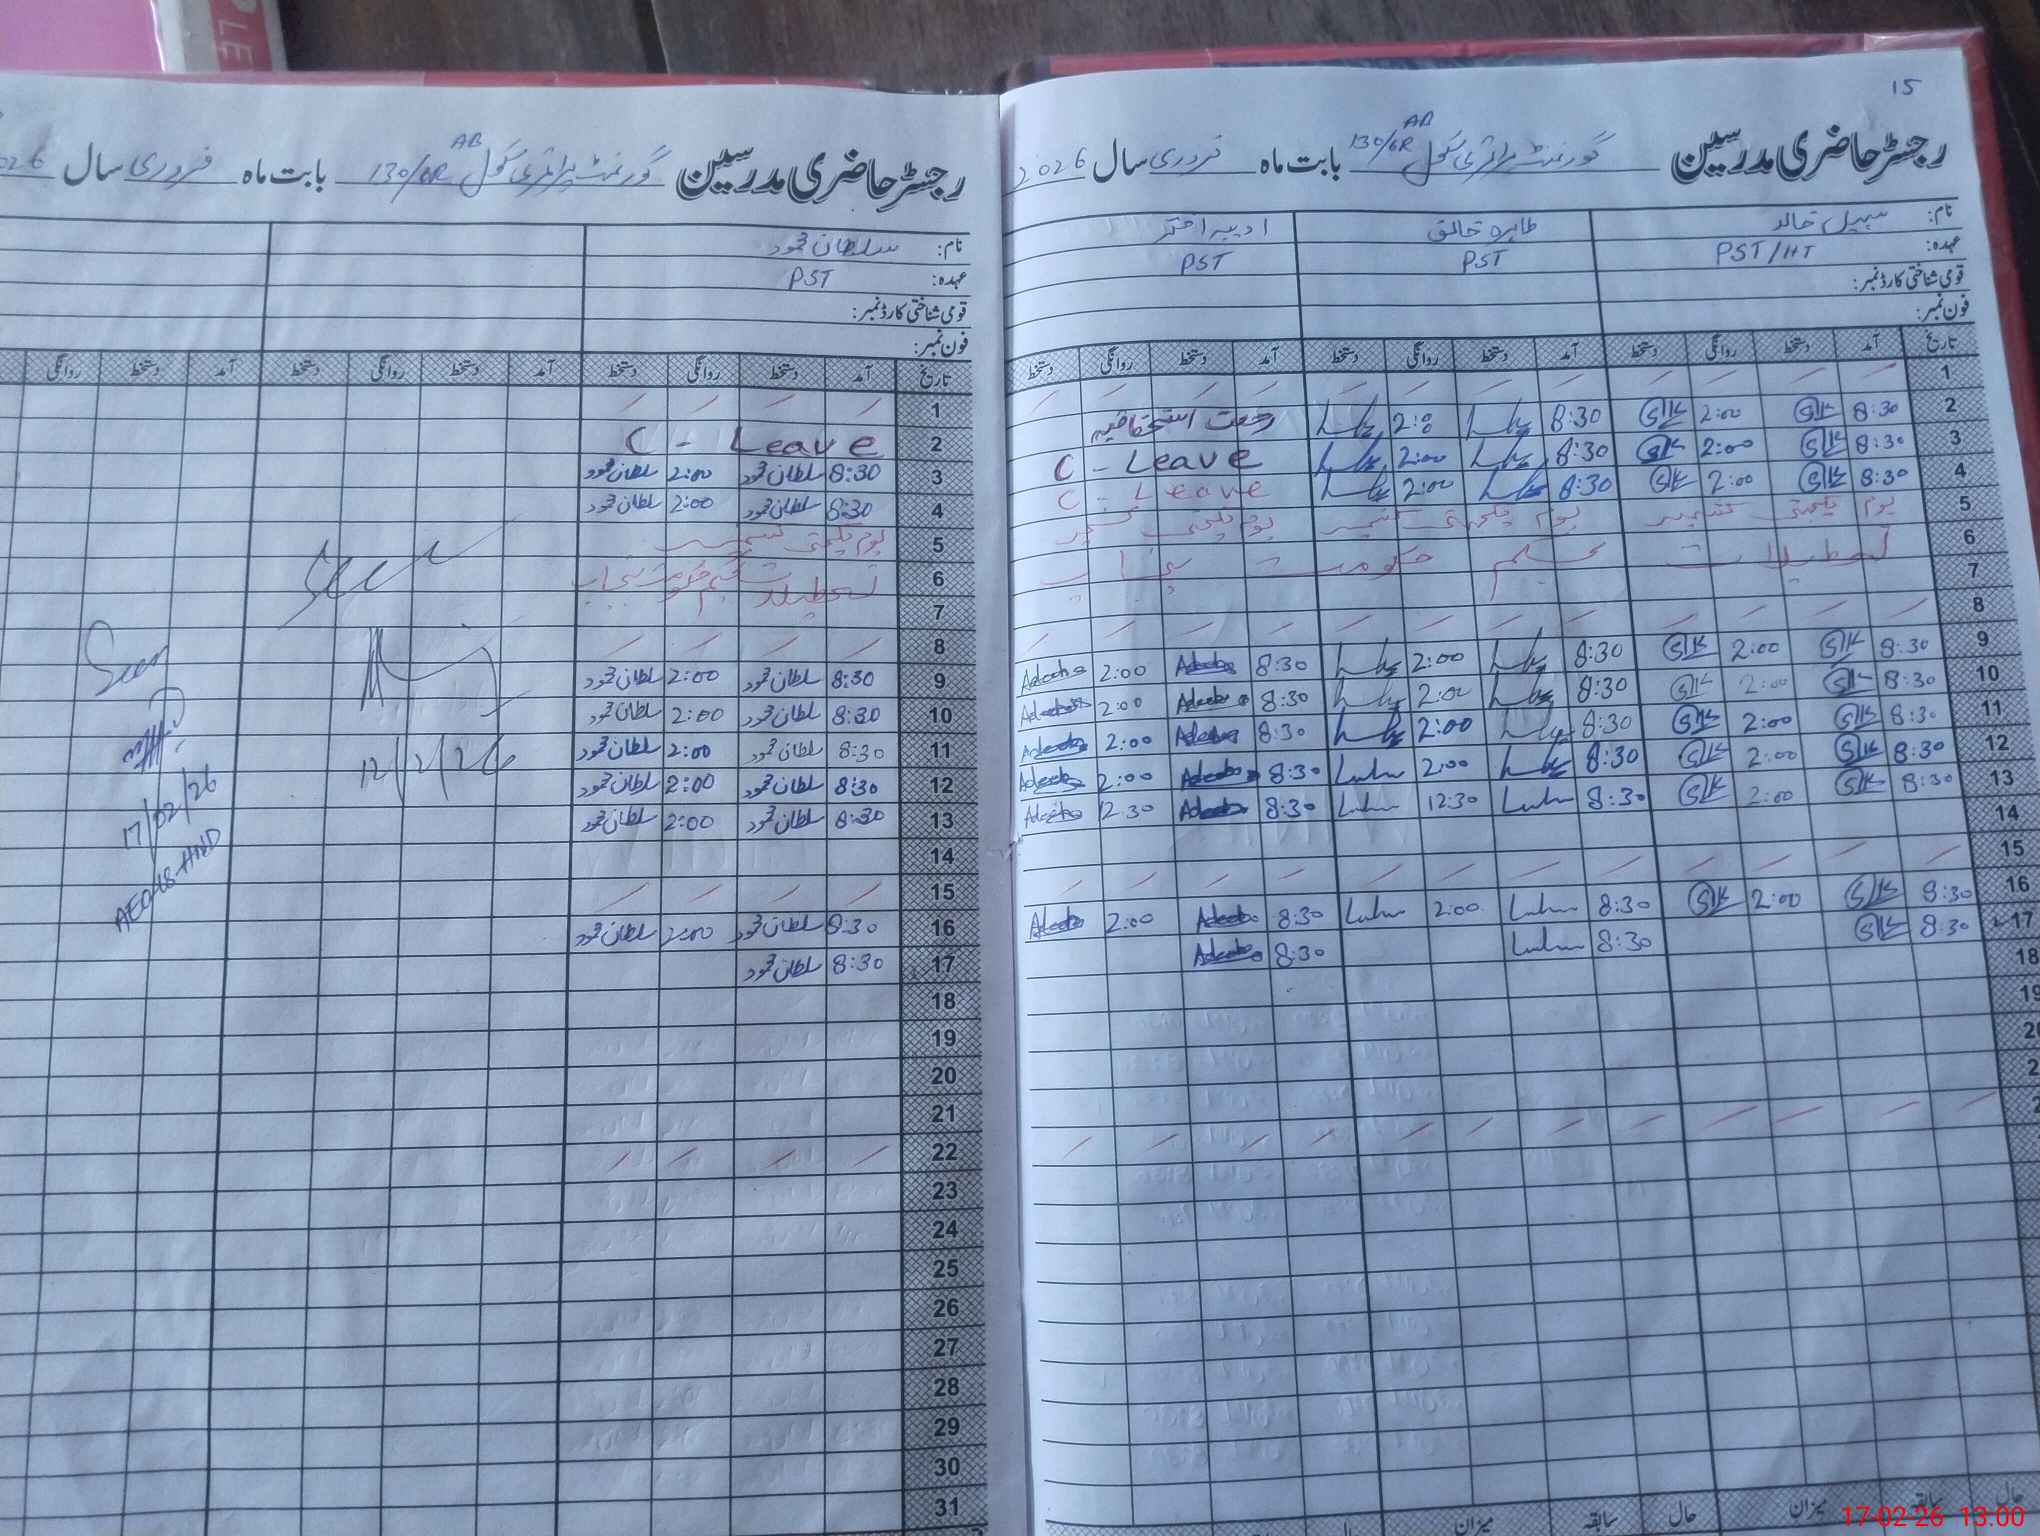 15
رجسٹر حاضری مدرسین گورنمنٹ پرائمری سکول 130/6R AB بابت ماہ فروری سال 2026
نام: سہیل خالد طاہرہ خالق ادیبہ اختر
عہدہ: PST/HT PST PST
قومی شناختی کارڈ نمبر:
فون نمبر:
تاریخ آمد دستخط روانگی دستخط آمد دستخط روانگی دستخط آمد دستخط روانگی دستخط
1
2 8:30 SK 2:00 SK 8:30 رخصت استحقاقیہ
3 8:30 SK 2:00 SK 8:30 2:00 C - Leave
4 8:30 SK 2:00 SK 8:30 2:00 C - Leave
5 یوم یکجہتی کشمیر یوم یکجہتی کشمیر یوم یکجہتی کشمیر
6 تعطیلات حکومت پنجاب
7
8
9 8:30 SK 2:00 SK 8:30 2:00 8:30 Adeeba 2:00 Adeeba
10 8:30 SK 2:00 SK 8:30 2:00 8:30 Adeeba 2:00 Adeeba
11 8:30 SK 2:00 SK 8:30 2:00 8:30 Adeeba 2:00 Adeeba
12 8:30 SK 2:00 SK 8:30 2:00 8:30 Adeeba 2:00 Adeeba
13 8:30 SK 2:00 SK 8:30 12:30 8:30 Adeeba 12:30 Adeeba
14
15
16 8:30 SK 2:00 SK 8:30 2:00 8:30 Adeeba 2:00 Adeeba
17 8:30 SK 8:30 8:30 Adeeba
18
19
میزان سابقہ حال میزان سابقہ حال
رجسٹر حاضری مدرسین گورنمنٹ پرائمری سکول 130/6R AB بابت ماہ فروری سال 2026
نام: سلطان محمود
عہدہ: PST
قومی شناختی کارڈ نمبر:
فون نمبر:
تاریخ آمد دستخط روانگی دستخط آمد دستخط روانگی دستخط آمد دستخط روانگی
1
2 C - Leave
3 8:30 سلطان محمود 2:00 سلطان محمود
4 8:30 سلطان محمود 2:00 سلطان محمود
5 یوم یکجہتی کشمیر
6 تعطیلات حکومت پنجاب
7
8
9 8:30 سلطان محمود 2:00 سلطان محمود
10 8:30 سلطان محمود 2:00 سلطان محمود
11 8:30 سلطان محمود 2:00 سلطان محمود
12 8:30 سلطان محمود 2:00 سلطان محمود
13 8:30 سلطان محمود 2:00 سلطان محمود
14
15
16 8:30 سلطان محمود 2:00 سلطان محمود
17 8:30 سلطان محمود
18
19
20
21
22
23
24
25
26
27
28
29
30
31
Seen
12/2/26
Seen
17/02/26
17-02-26 13:00